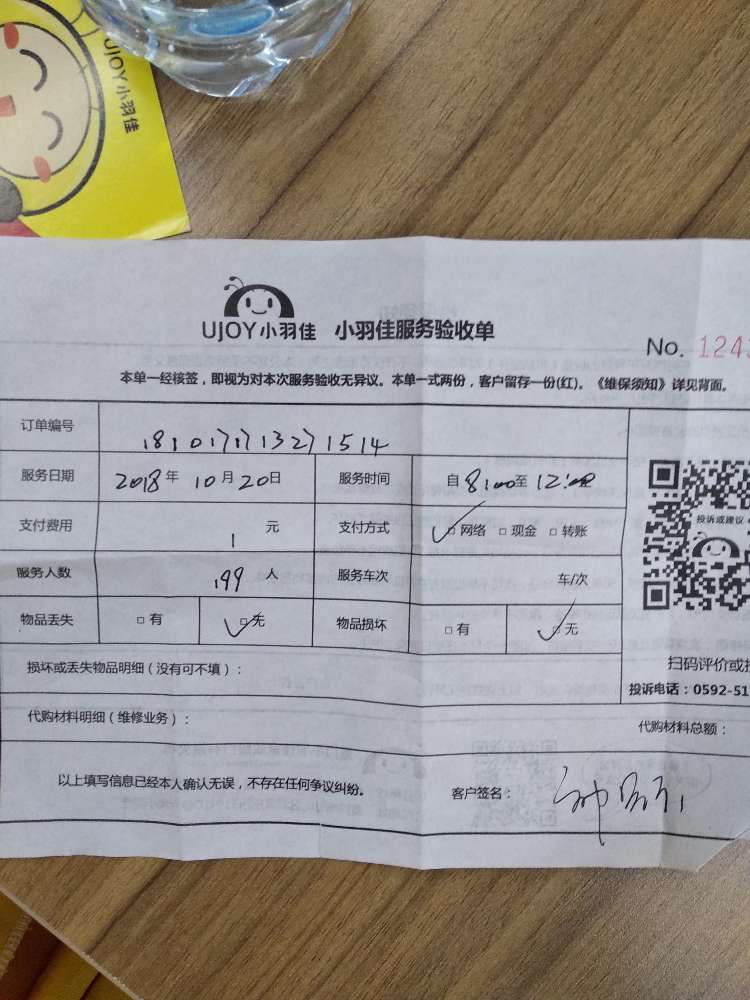 UJOY小羽佳
UJOY小羽佳 小羽佳服务验收单
No. 124
本单一经核签，即视为对本次服务验收无异议。本单一式两份，客户留存一份(红)。《维保须知》详见背面。
订单编号 181017113271514
服务日期 2018年 10月20日 服务时间 自 8:00至 12:00
支付费用 1 元 支付方式 □网络 □现金 □转账
服务人数 199 人 服务车次 车/次
物品丢失 □有 □无 物品损坏 □有 □无
投诉或建议
扫码评价或投
损坏或丢失物品明细（没有可不填）：
投诉电话：0592-51
代购材料明细（维修业务）： 代购材料总额：
以上填写信息已经本人确认无误，不存在任何争议纠纷。 客户签名：